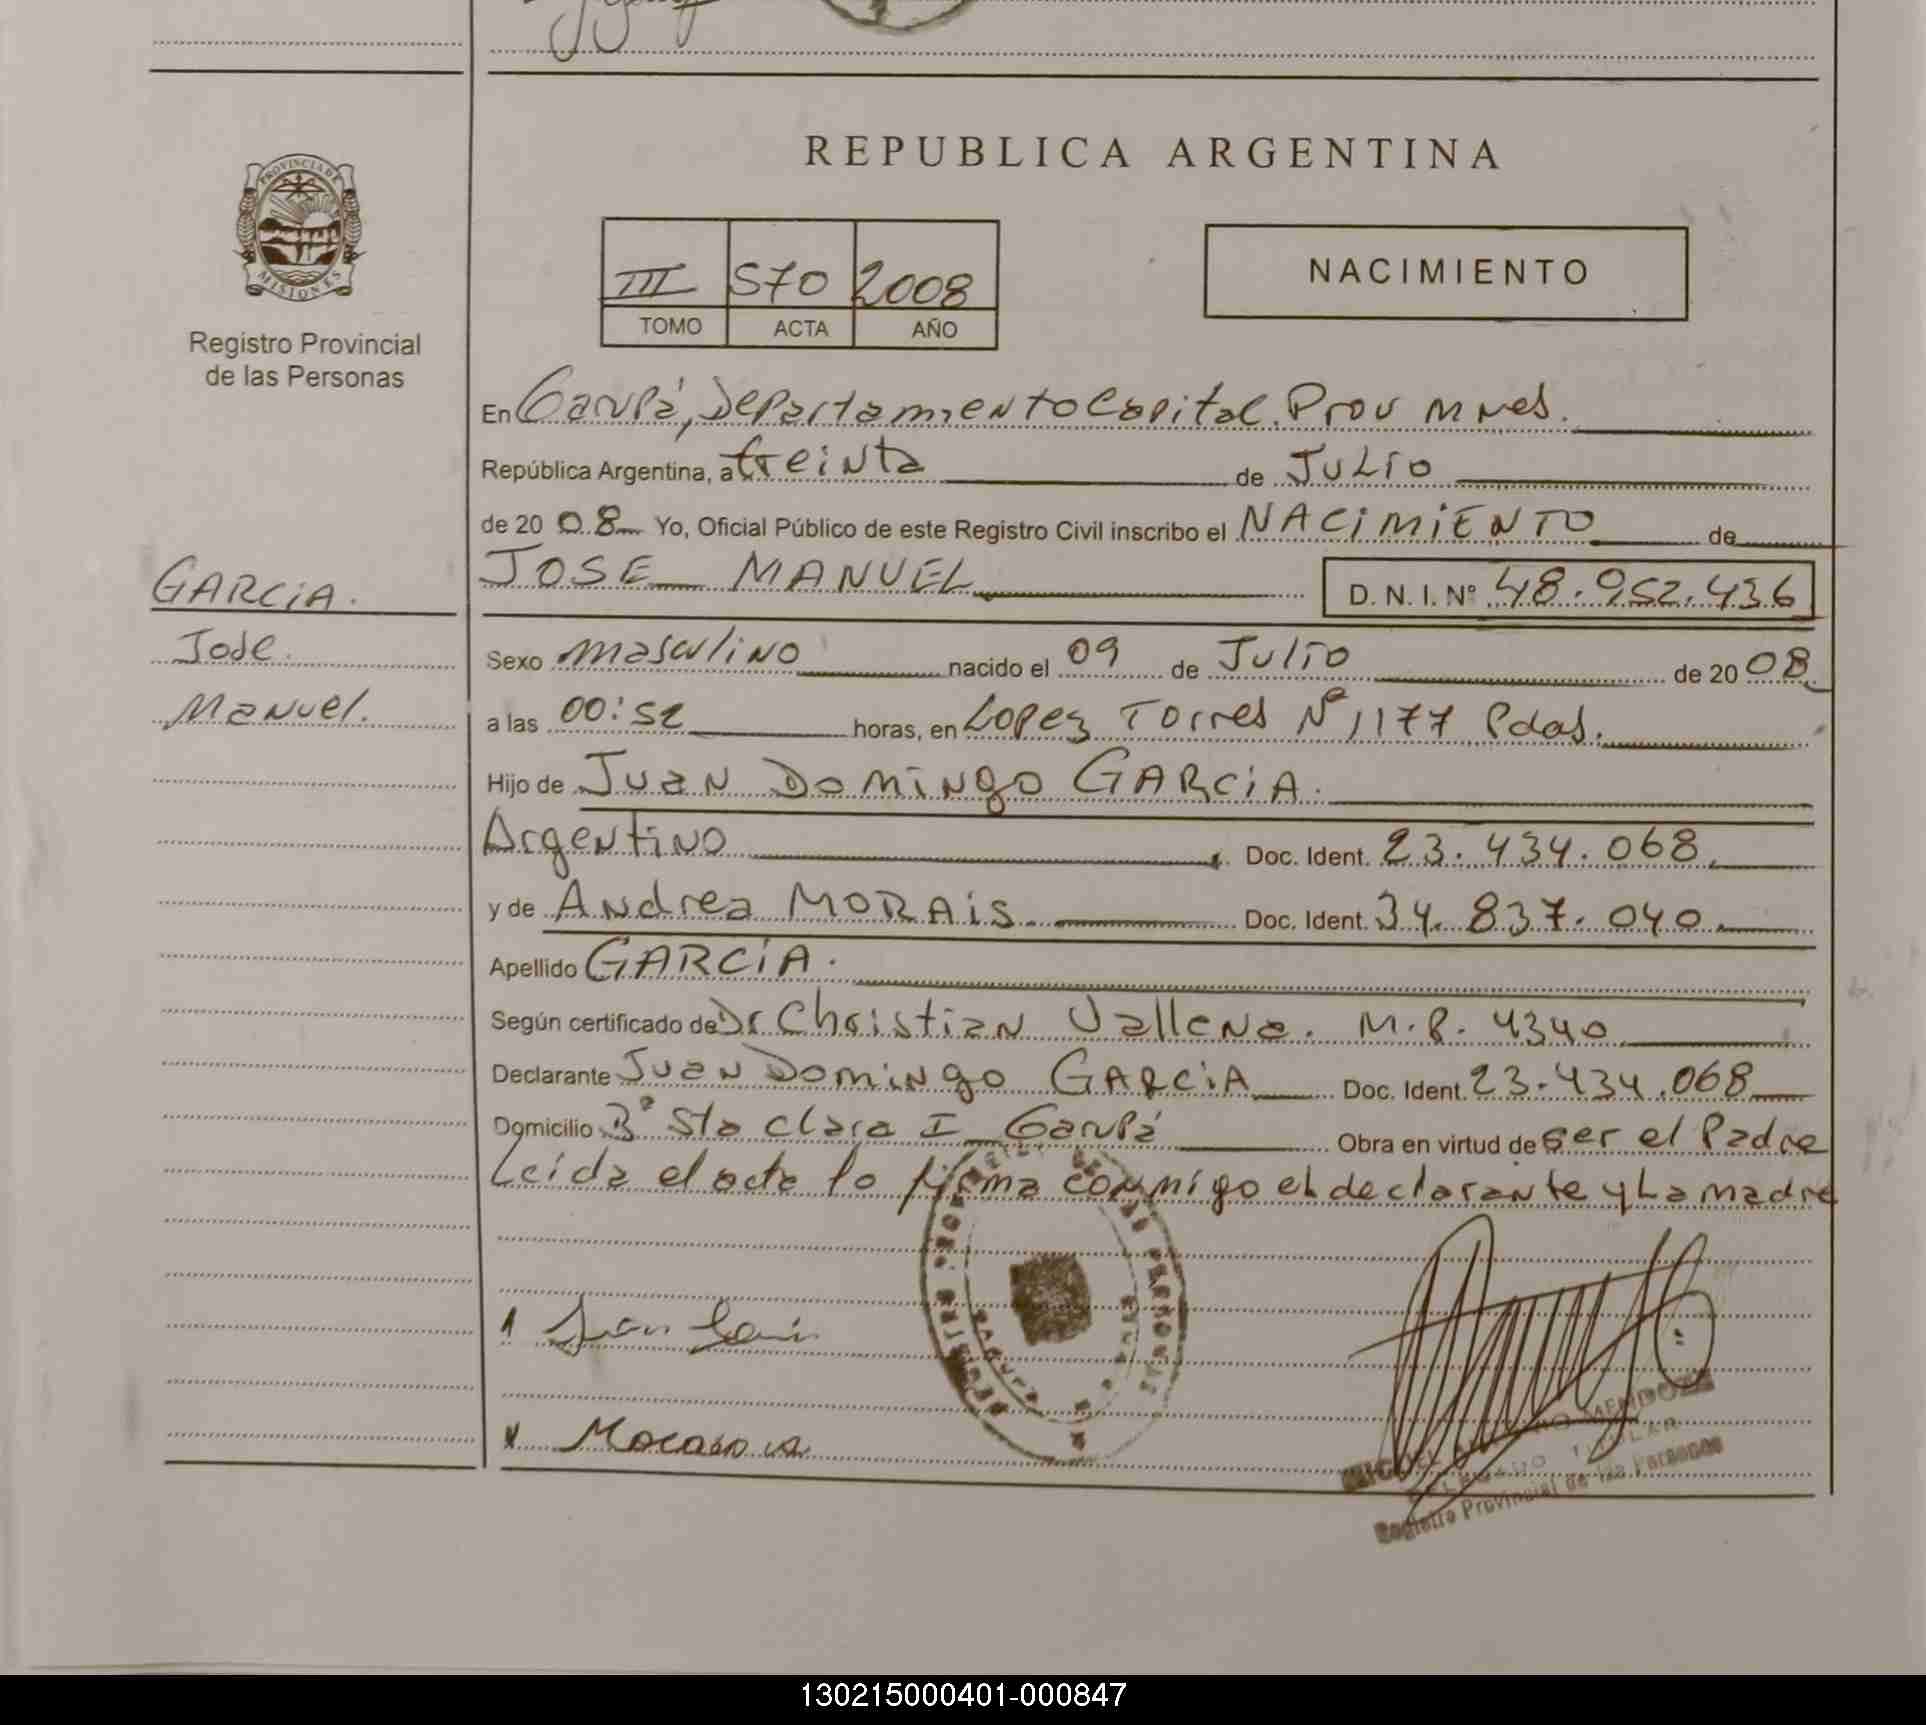 REPUBLICA ARGENTINA
PROVINCIA DE
MISIONES
Registro Provincial
de las Personas
III 570 2008
TOMO ACTA AÑO
NACIMIENTO
En Garupá, Departamento Capital. Prov Mnes.
República Argentina, a treinta de Julio
de 20 08 Yo, Oficial Público de este Registro Civil inscribo el NACIMIENTO de
JOSE MANUEL D. N. I. Nº 48.952.436
GARCIA.
Jose
Manuel.
Sexo masculino nacido el 09 de Julio de 20 08
a las 00:52 horas, en Lopez Torres Nº 1177 Pdas.
Hijo de Juan Domingo GARCIA.
Argentino Doc. Ident. 23.434.068
y de Andrea MORAIS Doc. Ident. 34.837.040
Apellido GARCIA.
Según certificado de Dr Christian M.P. 4340
Declarante Juan Domingo GARCIA Doc. Ident. 23.434.068
Domicilio Bº Sta Clara I Garupá Obra en virtud de ser el Padre
Leida el acta lo firma conmigo el declarante y La madre
Registro Provincial de las Personas
130215000401-000847